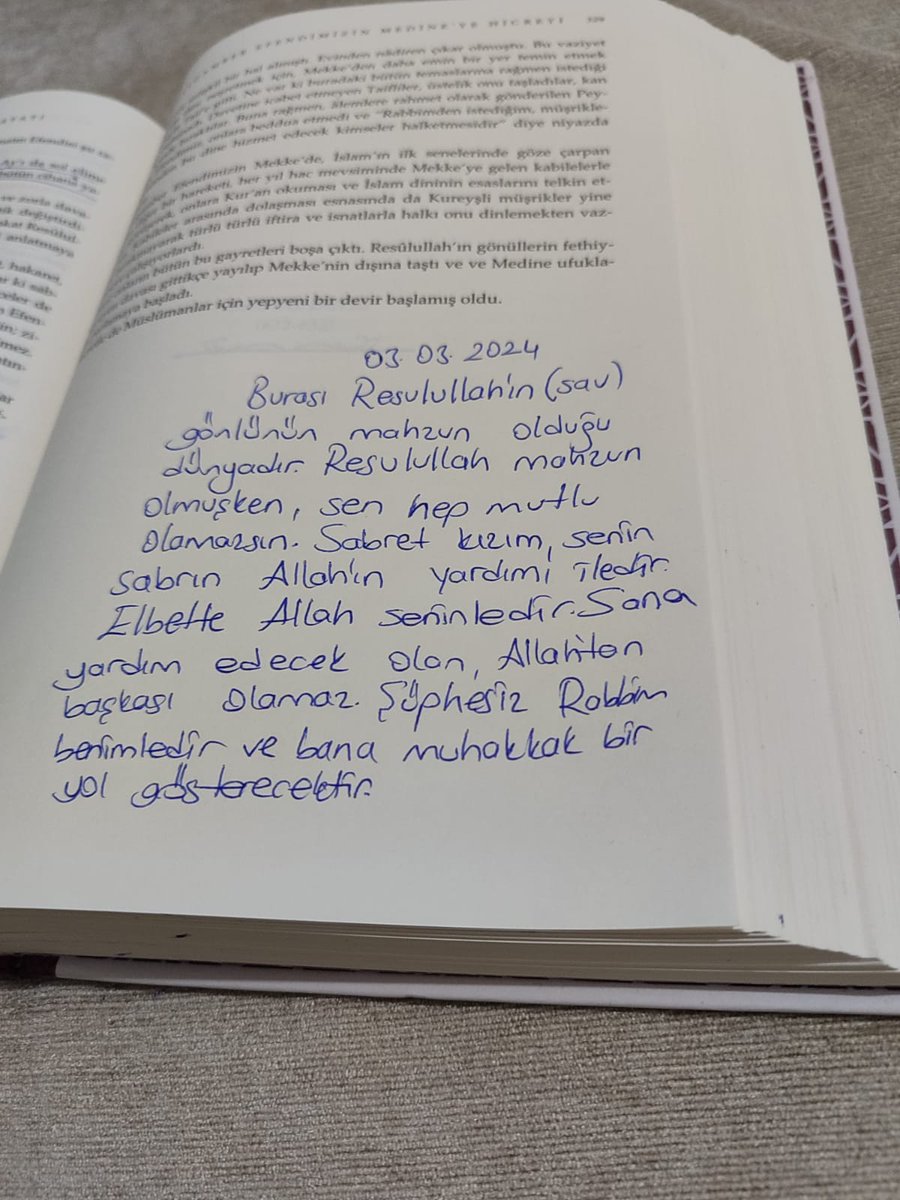 EFENDİMİZİN MEDİNE'YE HİCRETİ 329
bir hal almıştı. Evinden nâdiren çıkar olmuştu. Bu vaziyet
için, Mekke'den daha emin bir yer temin etmek
gitti. Ne var ki buradaki bütün temaslarına rağmen istediği
Davetine icabet etmeyen Taifliler, üstelik onu taşladılar, kan
Buna rağmen, âlemlere rahmet olarak gönderilen Pey-
onlara beddua etmedi ve "Rabbimden istediğim, müşrikle-
bu dine hizmet edecek kimseler halketmesidir" diye niyazda
Efendimizin Mekke'de, İslam'ın ilk senelerinde göze çarpan
bir hareketi, her yıl hac mevsiminde Mekke'ye gelen kabilelerle
onlara Kur'an okuması ve İslam dininin esaslarını telkin et-
arasında dolaşması esnasında da Kureyşli müşrikler yine
türlü türlü iftira ve isnatlarla halkı onu dinlemekten vaz-
bütün bu gayretleri boşa çıktı. Resûlullah'ın gönüllerin fethiy-
davası gittikçe yayılıp Mekke'nin dışına taştı ve ve Medine ufukla-
başladı.
de Müslümanlar için yepyeni bir devir başlamış oldu.
03.03.2024
Burası Resulullah'ın (sav)
gönlünün mahzun olduğu
dünyadır. Resulullah mahzun
olmuşken, sen hep mutlu
olamazsın. Sabret kızım, senin
sabrın Allah'ın yardımı iledir.
Elbette Allah seninledir. Sana
yardım edecek olan, Allah'tan
başkası olamaz. Şüphesiz Rabbim
benimledir ve bana muhakkak bir
yol gösterecektir.